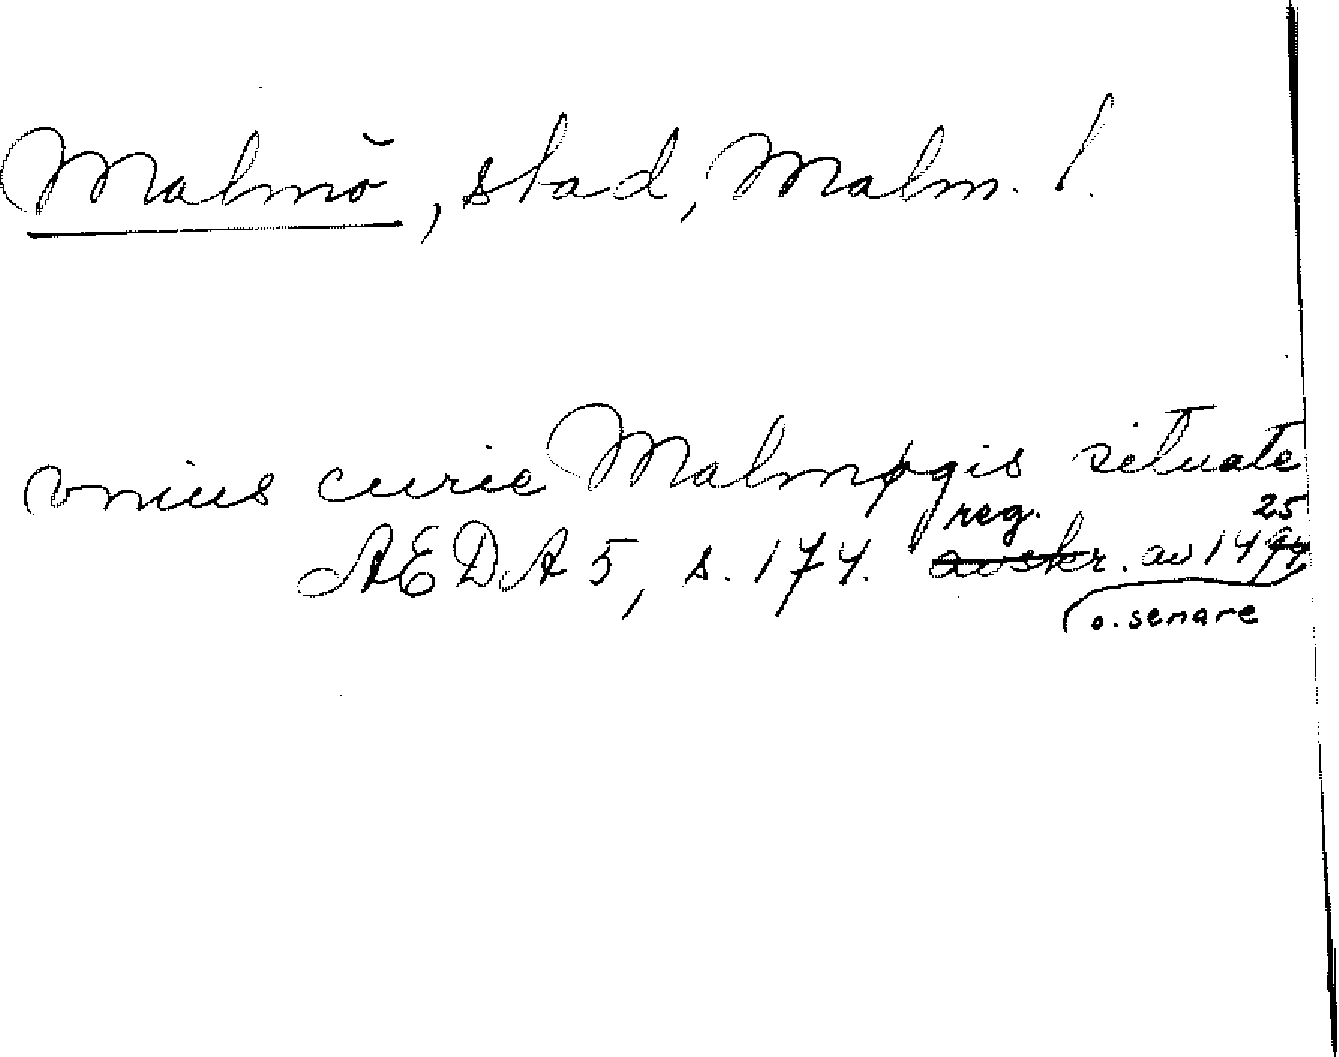 Malmö, stad, Malm. l.
vnius curie Malmøgis situate
reg. 25
AEDA 5, s. 174. avskr. av 1494
o. senare